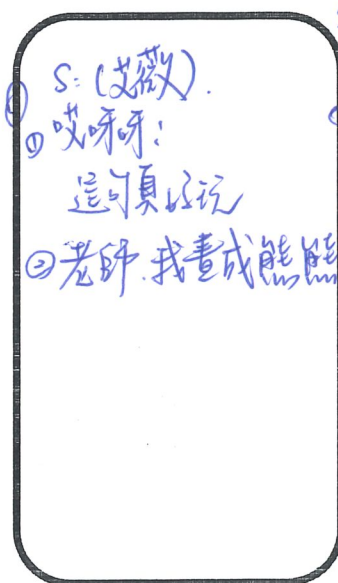 S:(艾薇).
①哎呀呀:
這可真好玩
②老師.我畫成熊熊